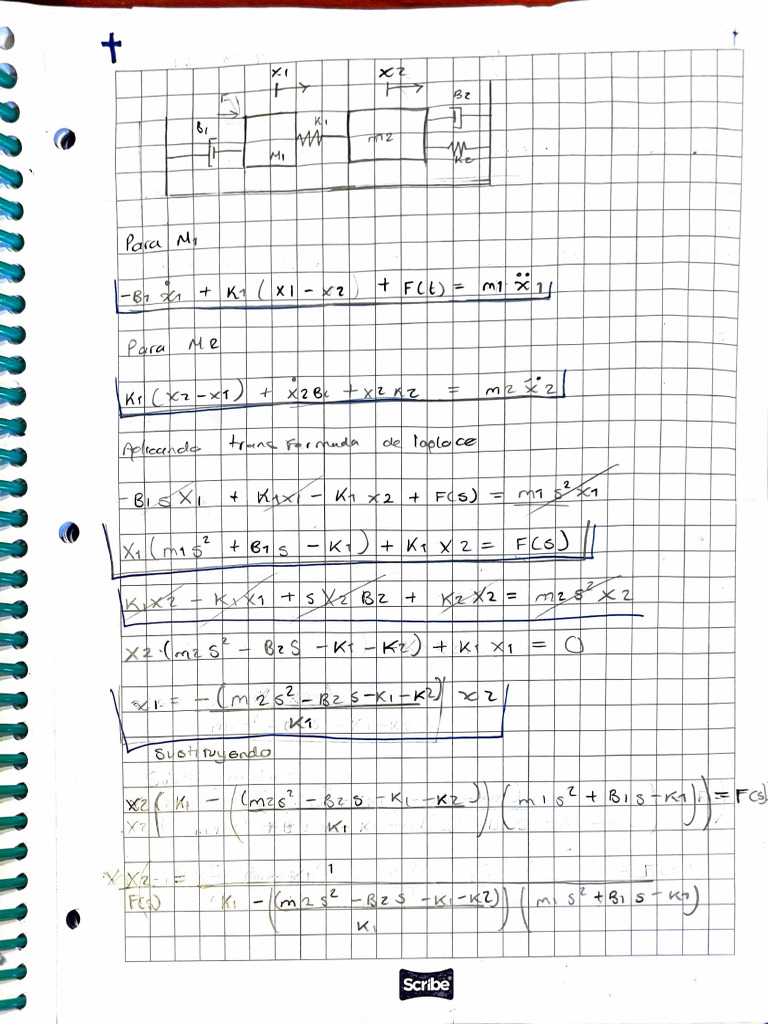 x1 x2
F B1 M1 K1 m2 B2 K2
Para M1
-B1 ẋ1 + K1 (x1 - x2) + F(t) = m1 ẍ1
Para M2
K1(x2-x1) + ẋ2 B2 + x2 K2 = m2 ẍ2
Aplicando transformada de laplace
-B1 s X1 + K1x1 - K1 x2 + F(s) = m1 s² x1
X1(m1s² + B1s - K1) + K1 X2 = F(s)
K1X2 - K1X1 + s X2 B2 + K2X2 = m2s² X2
X2·(m2s² - B2s - K1 - K2) + K1 x1 = 0
x1 = -(m2s² - B2s - K1 - K2) / K1 x2
Sustituyendo
x2 (K1 - ((m2s² - B2s - K1 - K2) / K1) (m1s² + B1s - K1)) = F(s)
X2 / F(s) = 1 / K1 - ((m2s² - B2s - K1 - K2) / K1) (m1s² + B1s - K1)
Scribe